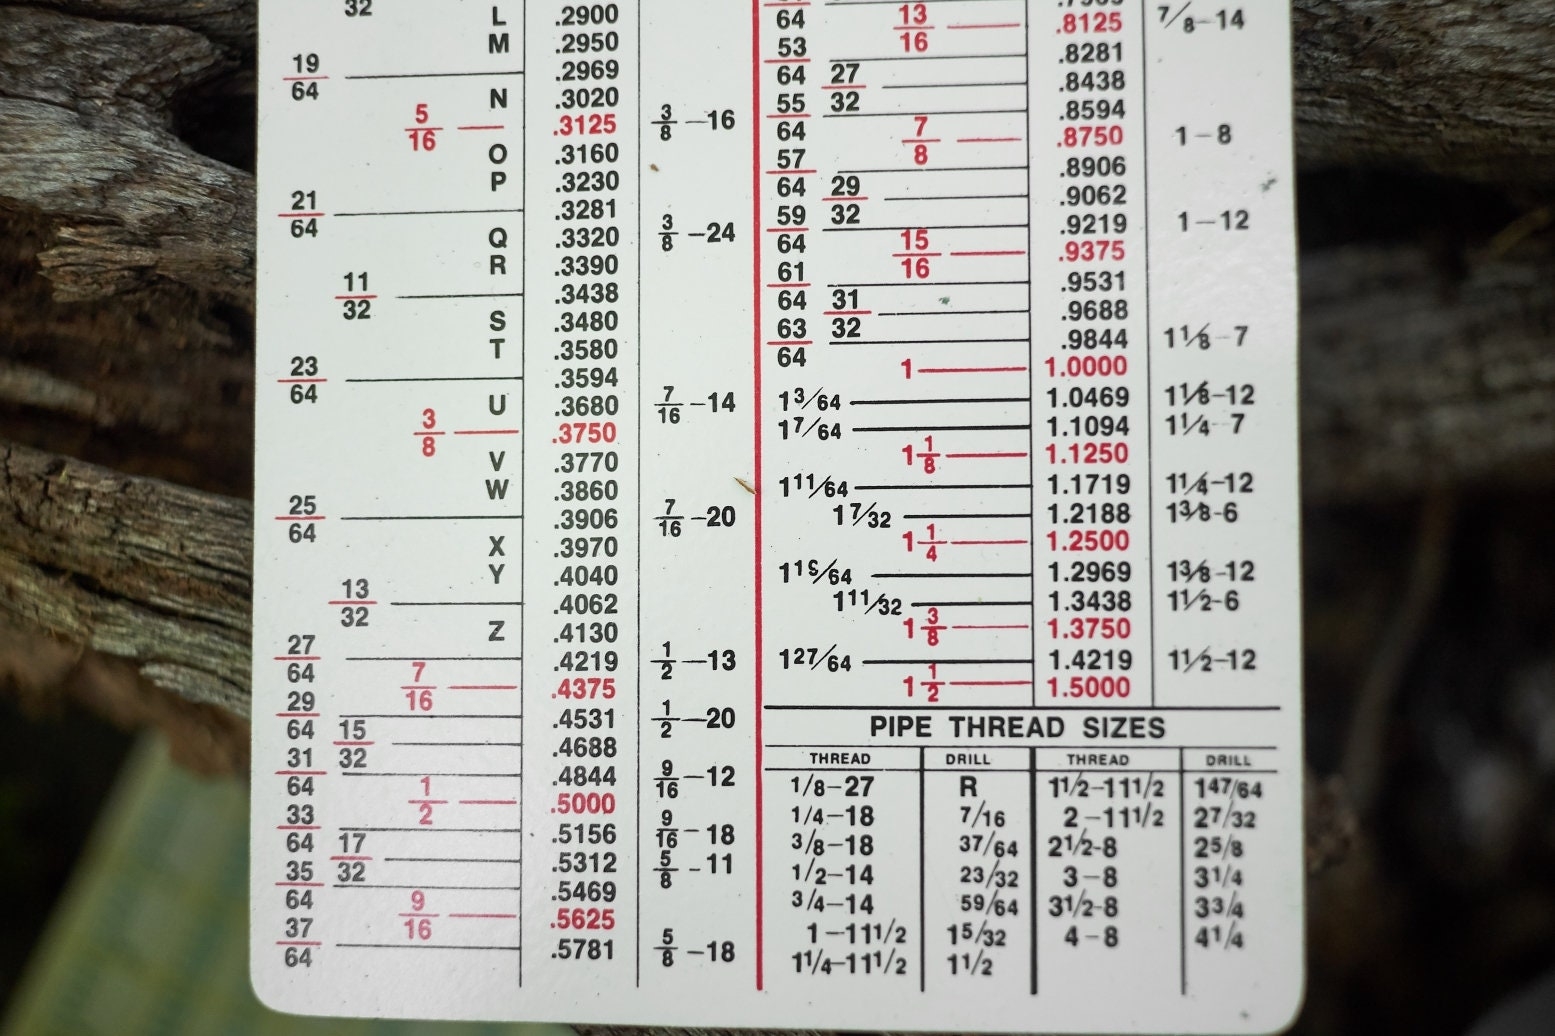 32
L .2900
M .2950
19/64 .2969
N .3020
5/16 .3125 3/8-16
O .3160
P .3230
21/64 .3281
Q .3320 3/8-24
R .3390
11/32 .3438
S .3480
T .3580
23/64 .3594
U .3680 7/16-14
3/8 .3750
V .3770
W .3860
25/64 .3906 7/16-20
X .3970
Y .4040
13/32 .4062
Z .4130
27/64 .4219 1/2-13
7/16 .4375
29/64 .4531 1/2-20
15/32 .4688
31/64 .4844 9/16-12
1/2 .5000
33/64 .5156 9/16-18
17/32 .5312 5/8-11
35/64 .5469
9/16 .5625
37/64 .5781 5/8-18
64
13/16 .8125 7/8-14
53/64 .8281
27/32 .8438
55/64 .8594
7/8 .8750 1-8
57/64 .8906
29/32 .9062
59/64 .9219 1-12
15/16 .9375
61/64 .9531
31/32 .9688
63/64 .9844 1 1/8-7
1 1.0000
1 3/64 1.0469 1 1/8-12
1 7/64 1.1094 1 1/4-7
1 1/8 1.1250
1 11/64 1.1719 1 1/4-12
1 7/32 1.2188 1 3/8-6
1 1/4 1.2500
1 19/64 1.2969 1 3/8-12
1 11/32 1.3438 1 1/2-6
1 3/8 1.3750
1 27/64 1.4219 1 1/2-12
1 1/2 1.5000
PIPE THREAD SIZES
THREAD DRILL THREAD DRILL
1/8-27 R 1 1/2-11 1/2 1 47/64
1/4-18 7/16 2-11 1/2 2 7/32
3/8-18 37/64 2 1/2-8 2 5/8
1/2-14 23/32 3-8 3 1/4
3/4-14 59/64 3 1/2-8 3 3/4
1-11 1/2 1 5/32 4-8 4 1/4
1 1/4-11 1/2 1 1/2